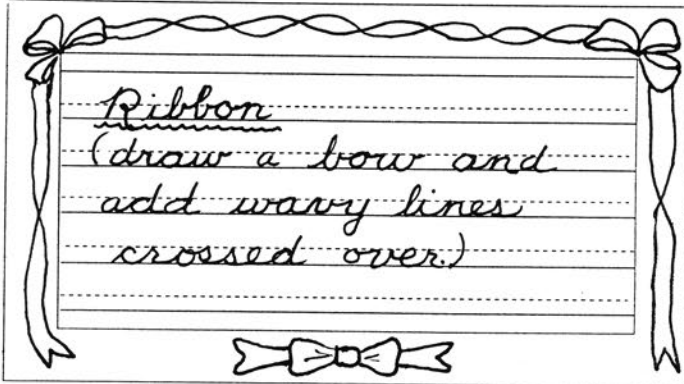 Ribbon
(draw a bow and
add wavy lines
crossed over.)